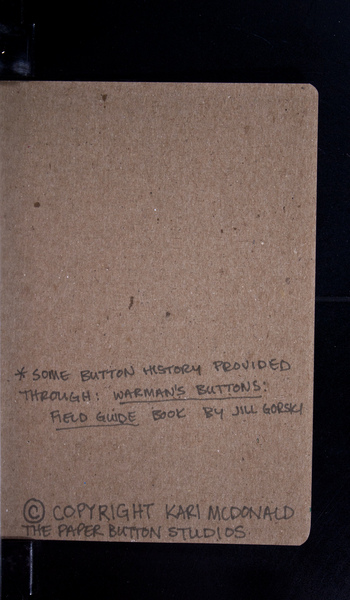 * SOME BUTTON HISTORY PROVIDED
THROUGH: WARMAN'S BUTTONS:
FIELD GUIDE BOOK BY JILL GORSKI
© COPYRIGHT KARI MCDONALD
THE PAPER BUTTON STUDIOS